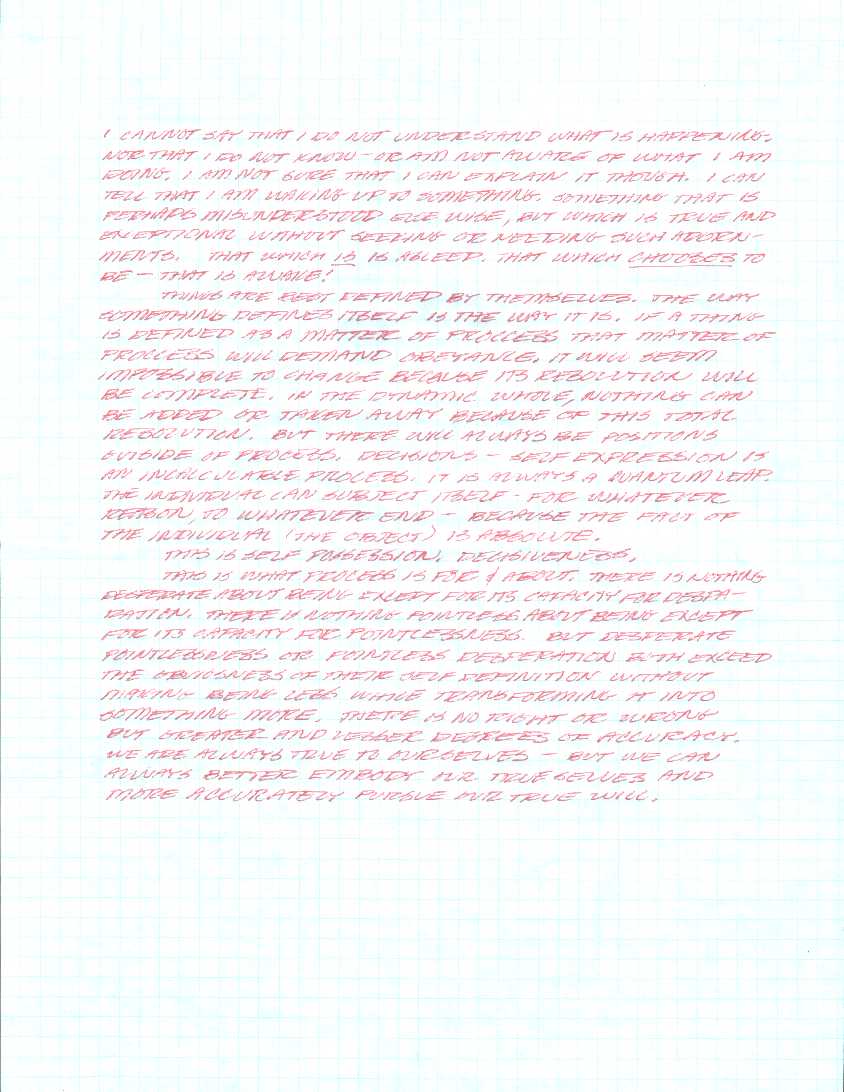 I CANNOT SAY THAT I DO NOT UNDERSTAND WHAT IS HAPPENING.
NOR THAT I DO NOT KNOW - OR AM NOT AWARE OF WHAT I AM
DOING. I AM NOT SURE THAT I CAN EXPLAIN IT THOUGH. I CAN
TELL THAT I AM WAKING UP TO SOMETHING. SOMETHING THAT IS
PERHAPS MISUNDERSTOOD ELSE WISE, BUT WHICH IS TRUE AND
EXCEPTIONAL WITHOUT SEEKING OR NEEDING SUCH ADORN-
MENTS. THAT WHICH IS IS ASLEEP. THAT WHICH CHOOSES TO
BE - THAT IS AWAKE!
THINGS ARE BEST DEFINED BY THEMSELVES. THE WAY
SOMETHING DEFINES ITSELF IS THE WAY IT IS. IF A THING
IS DEFINED AS A MATTER OF PROCCESS THAT MATTER OF
PROCCESS WILL DEMAND OBEYANCE. IT WILL SEEM
IMPOSSIBLE TO CHANGE BECAUSE ITS RESOLUTION WILL
BE COMPLETE. IN THE DYNAMIC WHOLE, NOTHING CAN
BE ADDED OR TAKEN AWAY BECAUSE OF THIS TOTAL
RESOLUTION. BUT THERE WILL ALWAYS BE POSITIONS
OUTSIDE OF PROCESS. DECISIONS - SELF EXPRESSION IS
AN INCALCULABLE PROCESS. IT IS ALWAYS A QUANTUM LEAP.
THE INDIVIDUAL CAN SUBJECT ITSELF - FOR WHATEVER
REASON, TO WHATEVER END - BECAUSE THE FACT OF
THE INDIVIDUAL (THE OBJECT) IS ABSOLUTE.
THIS IS SELF POSSESSION. DECISIVENESS.
THIS IS WHAT PROCESS IS FOR & ABOUT. THERE IS NOTHING
DESPERATE ABOUT BEING EXCEPT FOR ITS CAPACITY FOR DESPA-
RATION. THERE IS NOTHING POINTLESS ABOUT BEING EXCEPT
FOR ITS CAPACITY FOR POINTLESSNESS. BUT DESPERATE
POINTLESSNESS OR POINTLESS DESPERATION BOTH EXCEED
THE OBVIOSNESS OF THEIR SELF DEFINITION WITHOUT
MAKING BEING LESS WHILE TRANSFORMING IT INTO
SOMETHING MORE. THERE IS NO RIGHT OR WRONG
BUT GREATER AND LESSER DEGREES OF ACCURACY.
WE ARE ALWAYS TRUE TO OURSELVES - BUT WE CAN
ALWAYS BETTER EMBODY OUR TRUE SELVES AND
MORE ACCURATELY PURSUE OUR TRUE WILL.